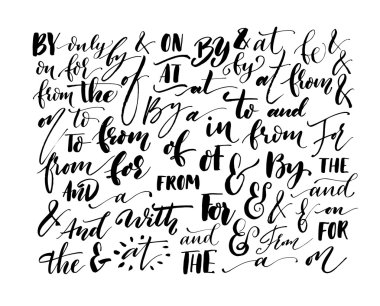 BY only by & ON By & at &
on for of AT at by at from &
from the By a to and &
on to from of in from For
from for of & By THE
AND a FROM and
& And With For & & & on
the & at and & From FOR
THE a on